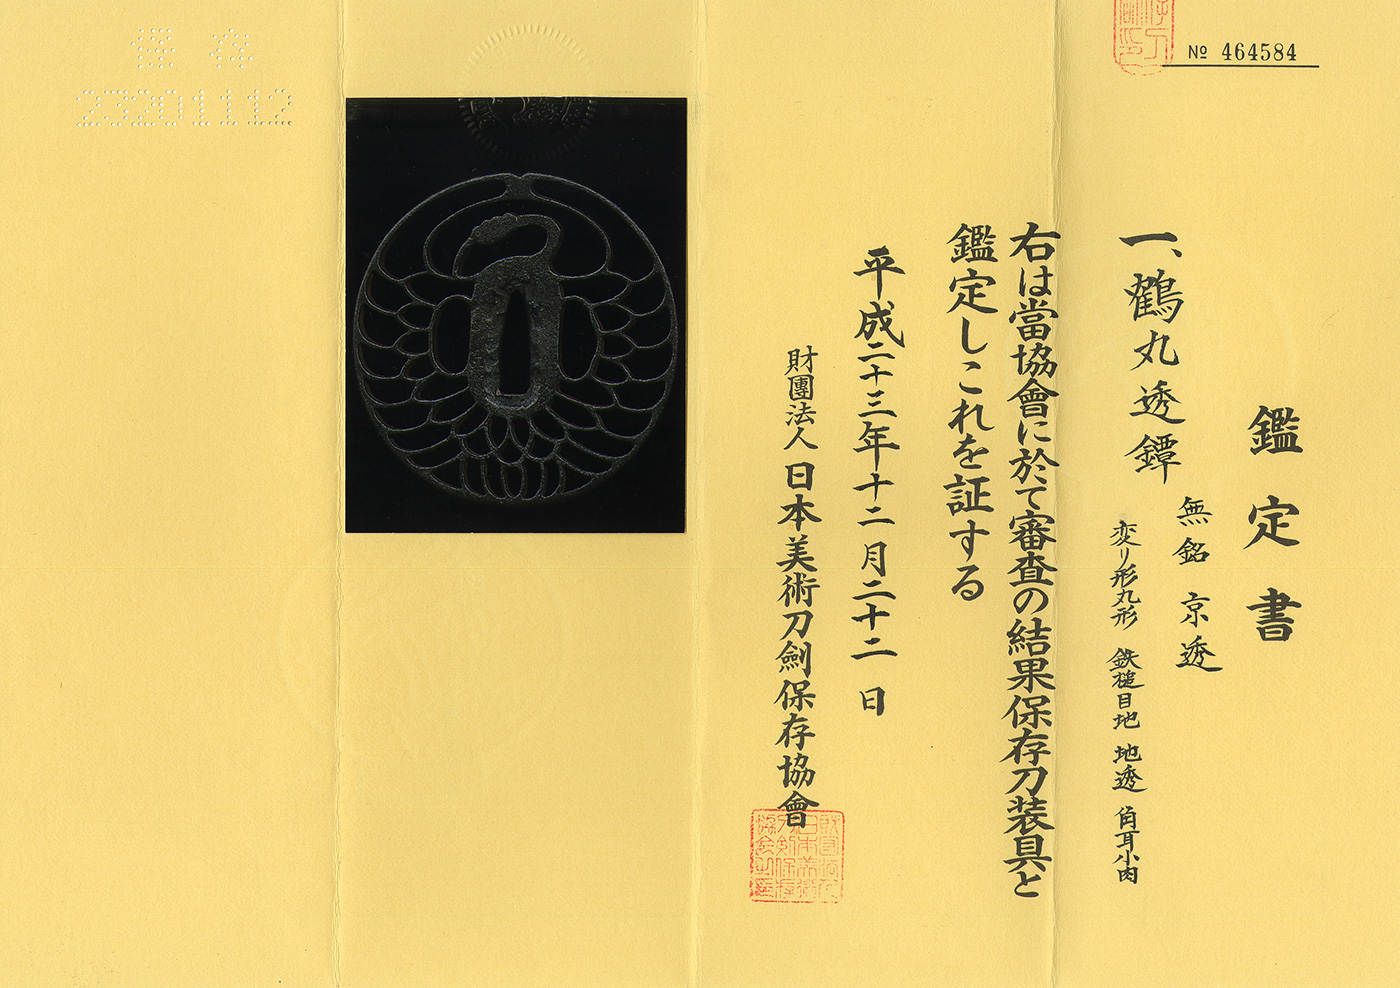 № 464584
鑑定書
一、鶴丸透鐔
無銘 京透
変り形丸形 鉄槌目地 地透 角耳小肉
右は當協會に於て審査の結果保存刀装具と
鑑定しこれを証する
平成二十三年十二月二十二日
財團法人 日本美術刀劍保存協會
保存
23201112